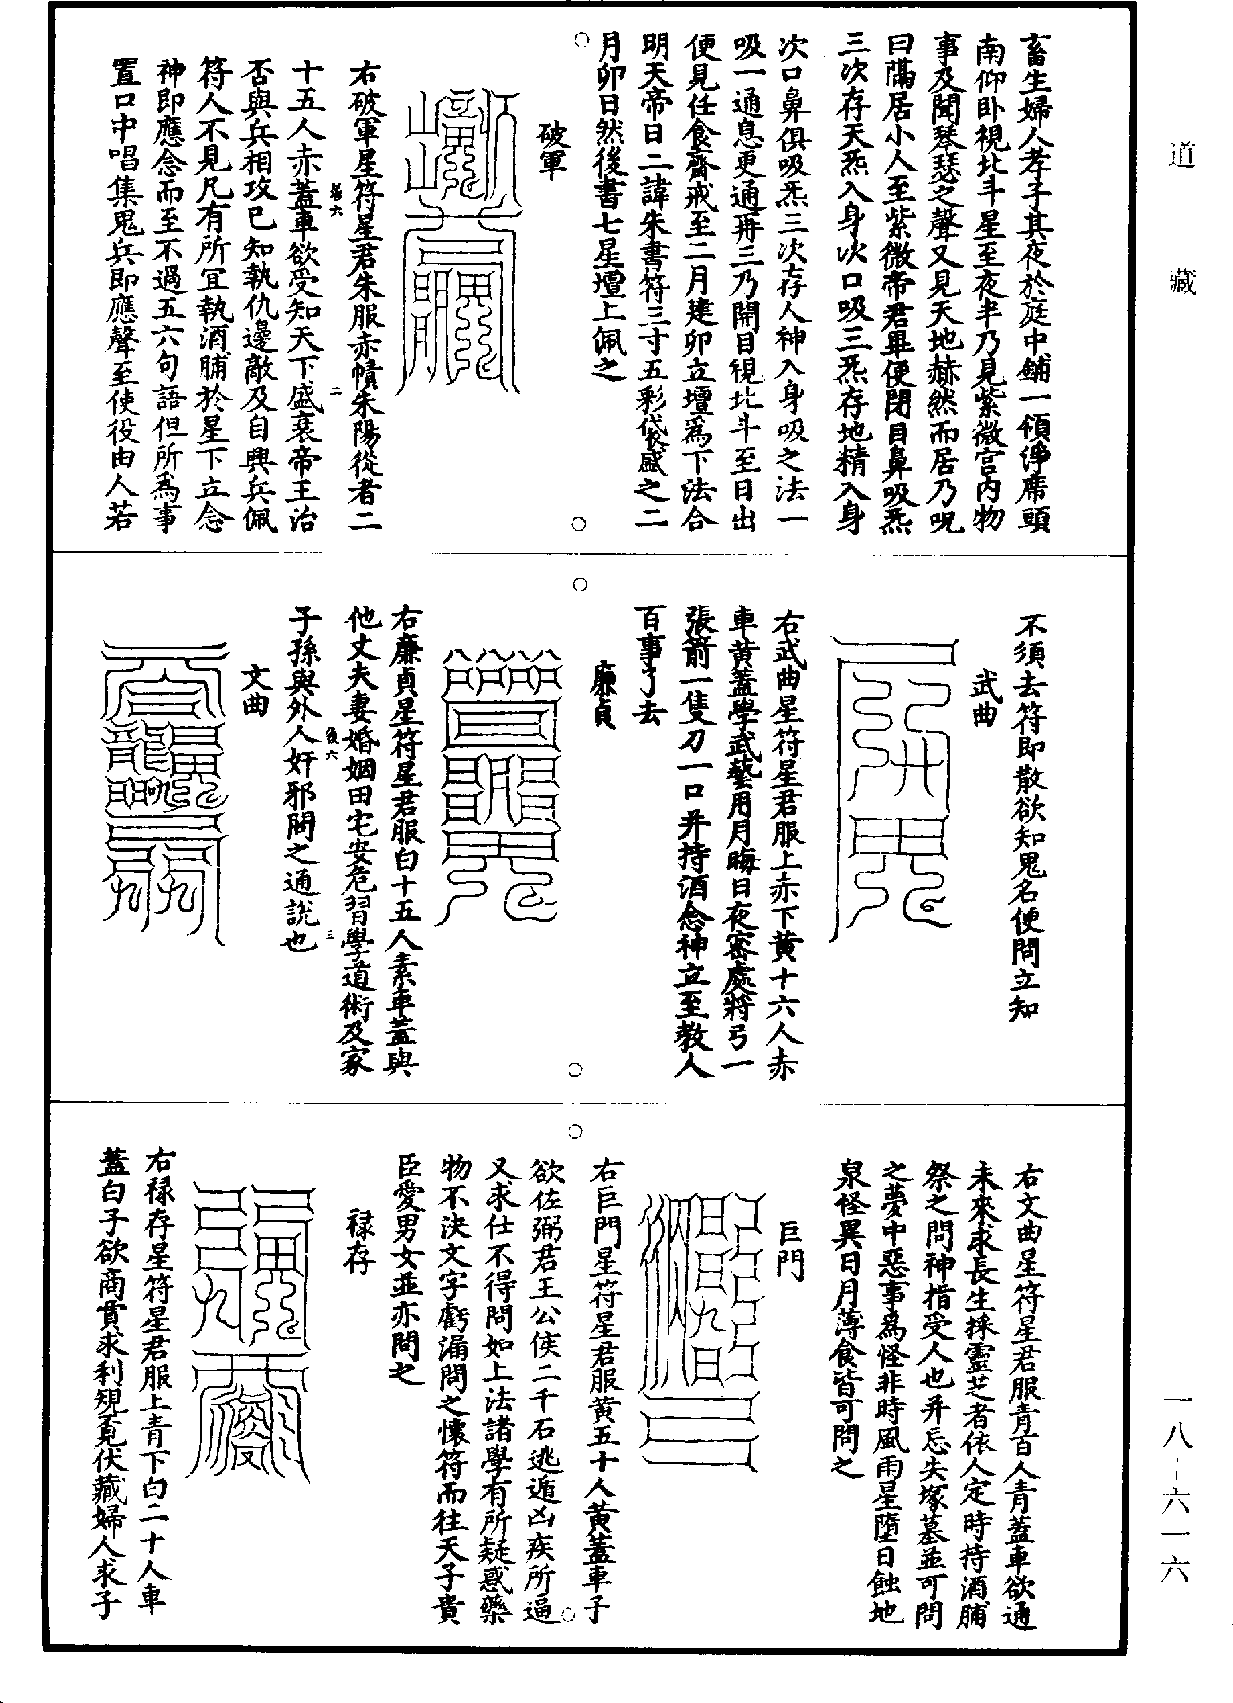 道藏
畜生婦人孝子其夜於庭中鋪一領淨席頭
南仰卧視北斗星至夜半乃見紫微宫内物
事及聞琴瑟之聲又見天地赫然而居乃呪
曰隔居小人至紫微帝君畢便閉目鼻吸炁
三次存天炁入身次口吸三炁存地精入身
次口鼻俱吸炁三次存人神入身吸之法一
吸一通息更通再三乃開目視北斗至日出
便見任食齋戒至二月建卯立壇為下法合
明天帝日二諱朱書符三寸五彩袋盛之二
月卯日然後書七星壇上佩之
破軍
右破軍星符星君朱服赤幘朱陽從者二
十五人赤蓋車欲受知天下盛衰帝王治
否與兵相攻已知執仇邊敵及自興兵佩
符人不見凡有所冝執酒脯於星下立念
神即應念而至不過五六句語但所為事
置口中唱集鬼兵即應聲至使役由人若
不須去符即散欲知鬼名便問立知
武曲
右武曲星符星君服上赤下黄十六人赤
車黄蓋學武藝用月晦日夜密處將弓一
張箭一隻刀一口并持酒念神立至教人
百事了去
廉貞
右廉貞星符星君服白十五人素車蓋與
他丈夫妻婚姻田宅安危習學道術及家
子孫與外人奸邪問之通說也
文曲
右文曲星符星君服青百人青蓋車欲通
未來求長生採靈芝者依人定時持酒脯
祭之問神指受人也并忌失塚墓並可問
之夢中惡事為怪非時風雨星墮日蝕地
泉怪異日月薄食皆可問之
巨門
右巨門星符星君服黄五十人黄蓋車子
欲佐弼君王公侯二千石逃遁凶疾所逼
又求仕不得問如上法諸學有所疑惑藥
物不決文字虧漏問之懷符而往天子貴
臣愛男女並亦問之
禄存
右禄存星符星君服上青下白二十人車
蓋白子欲商賈求利規覔伏藏婦人求子
一八-六一六